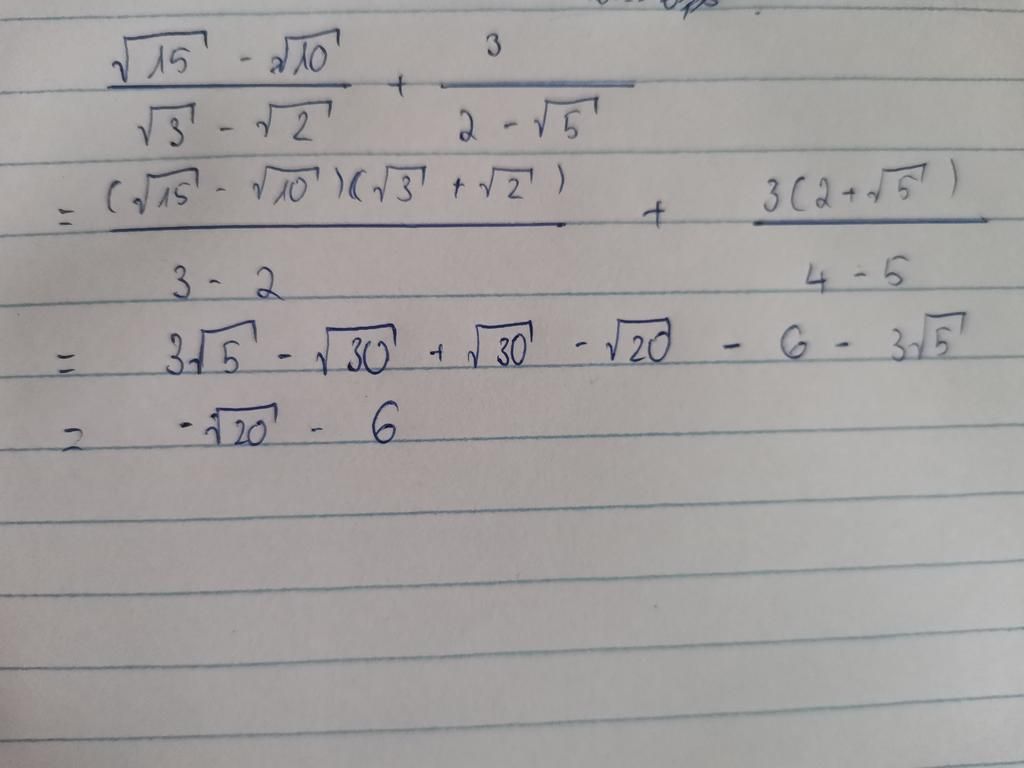 √15 - √10 / √3 - √2 + 3 / 2 - √5
= (√15 - √10)(√3 + √2) / 3 - 2 + 3(2 + √5) / 4 - 5
= 3√5 - √30 + √30 - √20 - 6 - 3√5
= -√20 - 6